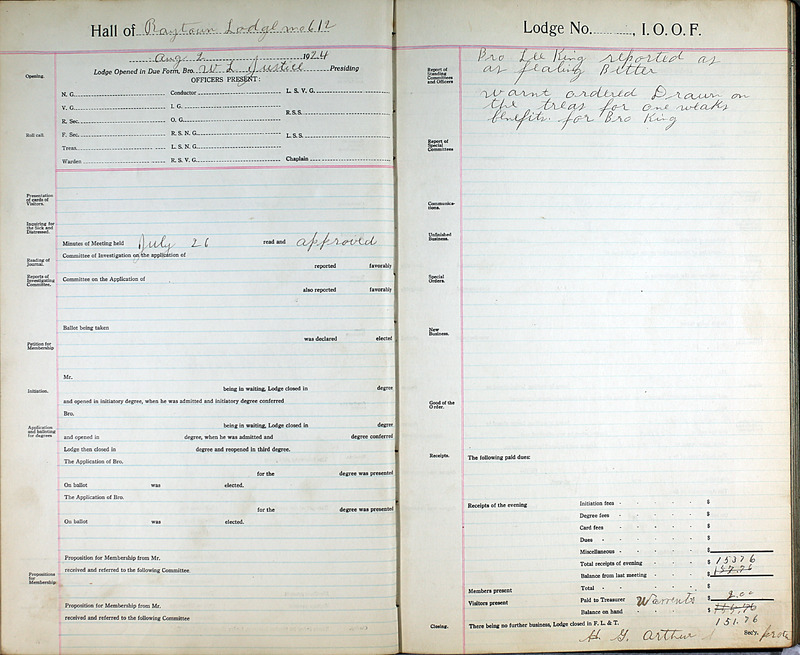 Hall of Raytown Lodge no 612
Aug 2 1924
Lodge Opened in Due Form, Bro. W L Justice Presiding
OFFICERS PRESENT:
Opening.
N. G. Conductor L. S. V. G.
V. G. I. G.
R. Sec. O. G. R.S.S.
Roll call.
F. Sec. R. S. N. G. L. S. S.
Treas. L. S. N. G.
Warden R. S. V. G. Chaplain
Presentation of cards of Visitors.
Inquiring for the Sick and Distressed.
Minutes of Meeting held July 26 read and approved
Reading of Journal.
Committee of Investigation on the application of
reported favorably
Reports of Investigating Committee.
Committee on the Application of
also reported favorably
Ballot being taken
was declared elected
Petition for Membership
Mr.
Initiation.
being in waiting, Lodge closed in degree
and opened in initiatory degree, when he was admitted and initiatory degree conferred
Bro.
Application and balloting for degrees
being in waiting, Lodge closed in degree
and opened in degree, when he was admitted and degree conferred
Lodge then closed in degree and reopened in third degree.
The Application of Bro.
for the degree was presented
On ballot was elected.
The Application of Bro.
for the degree was presented
On ballot was elected.
Proposition for Membership from Mr.
Propositions for Membership
received and referred to the following Committee
Proposition for Membership from Mr.
received and referred to the following Committee
Lodge No. , I. O. O. F.
Report of Standing Committees and Officers
Bro Lee King reported as
as fealing Better
Warnt ordered Drawn on
the treas for one weaks
benefits. for Bro King
Report of Special Committees
Communications.
Unfinished Business.
Special Orders.
New Business.
Good of the Order.
Receipts.
The following paid dues:
Receipts of the evening Initiation fees $
Degree fees $
Card fees $
Dues $
Miscellaneous $
Total receipts of evening $ 153 76
Balance from last meeting $
Members present Total $
Visitors present Paid to Treasurer Warrents $ 2.00
Balance on hand $
151.76
Closing. There being no further business, Lodge closed in F. L. & T.
H G. Arthur Sec'y. protem